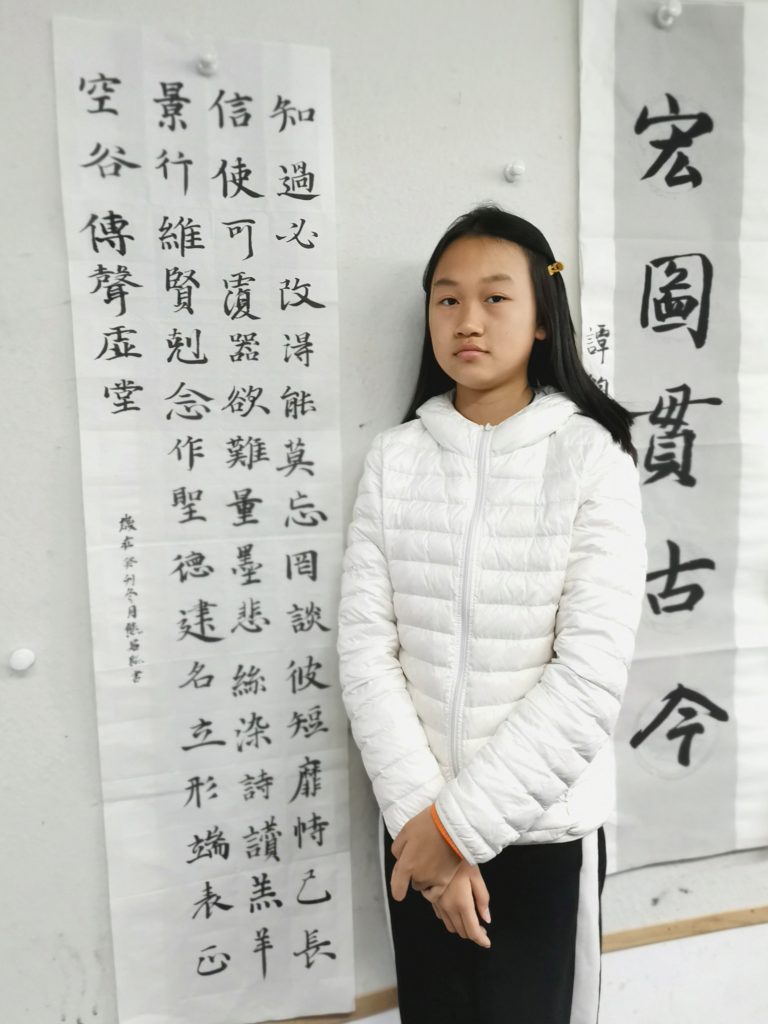 知過必改得能莫忘罔談彼短靡恃己長
信使可覆器欲難量墨悲絲染詩讚羔羊
景行維賢剋念作聖德建名立形端表正
空谷傳聲虛堂
歲在癸卯冬月書
宏圖貫古今
譚